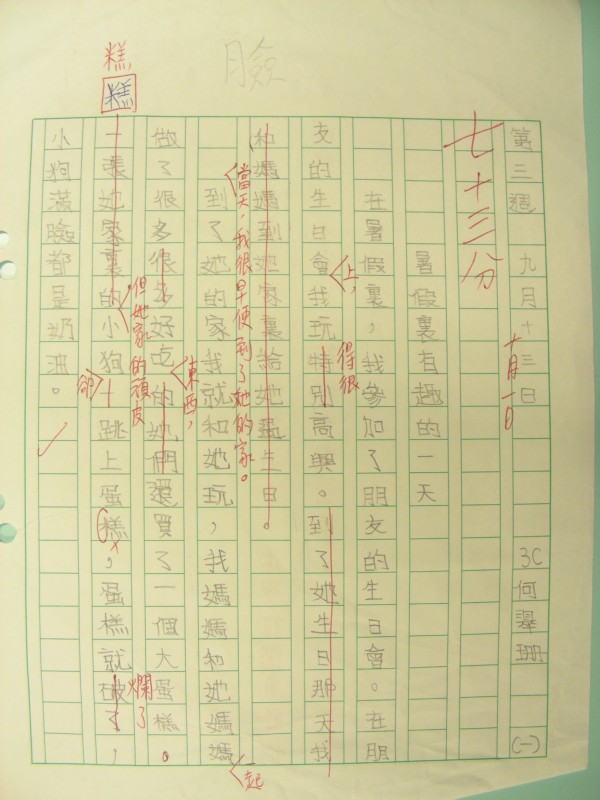 臉
糕
糕
第三週 九月十三日 3C 何翠珊 (一)
十月一日
七十三分
暑假裏有趣的一天
在暑假裏，我參加了朋友的生日會。在朋
友的生日會我玩特別高興。到了她生日那天我
上，
得很
和媽媽到她家裏給她生日。
當天，我很早便到了她的家。
到了她的家我就和她玩，我媽媽和她媽媽
一起
做了很多很多好吃的她們還買了一個大蛋糕。
東西，
一張她家裏的小狗十跳上蛋糕，蛋糕就破了，
但她家的頑皮
卻
爛了
小狗滿臉都是奶油。